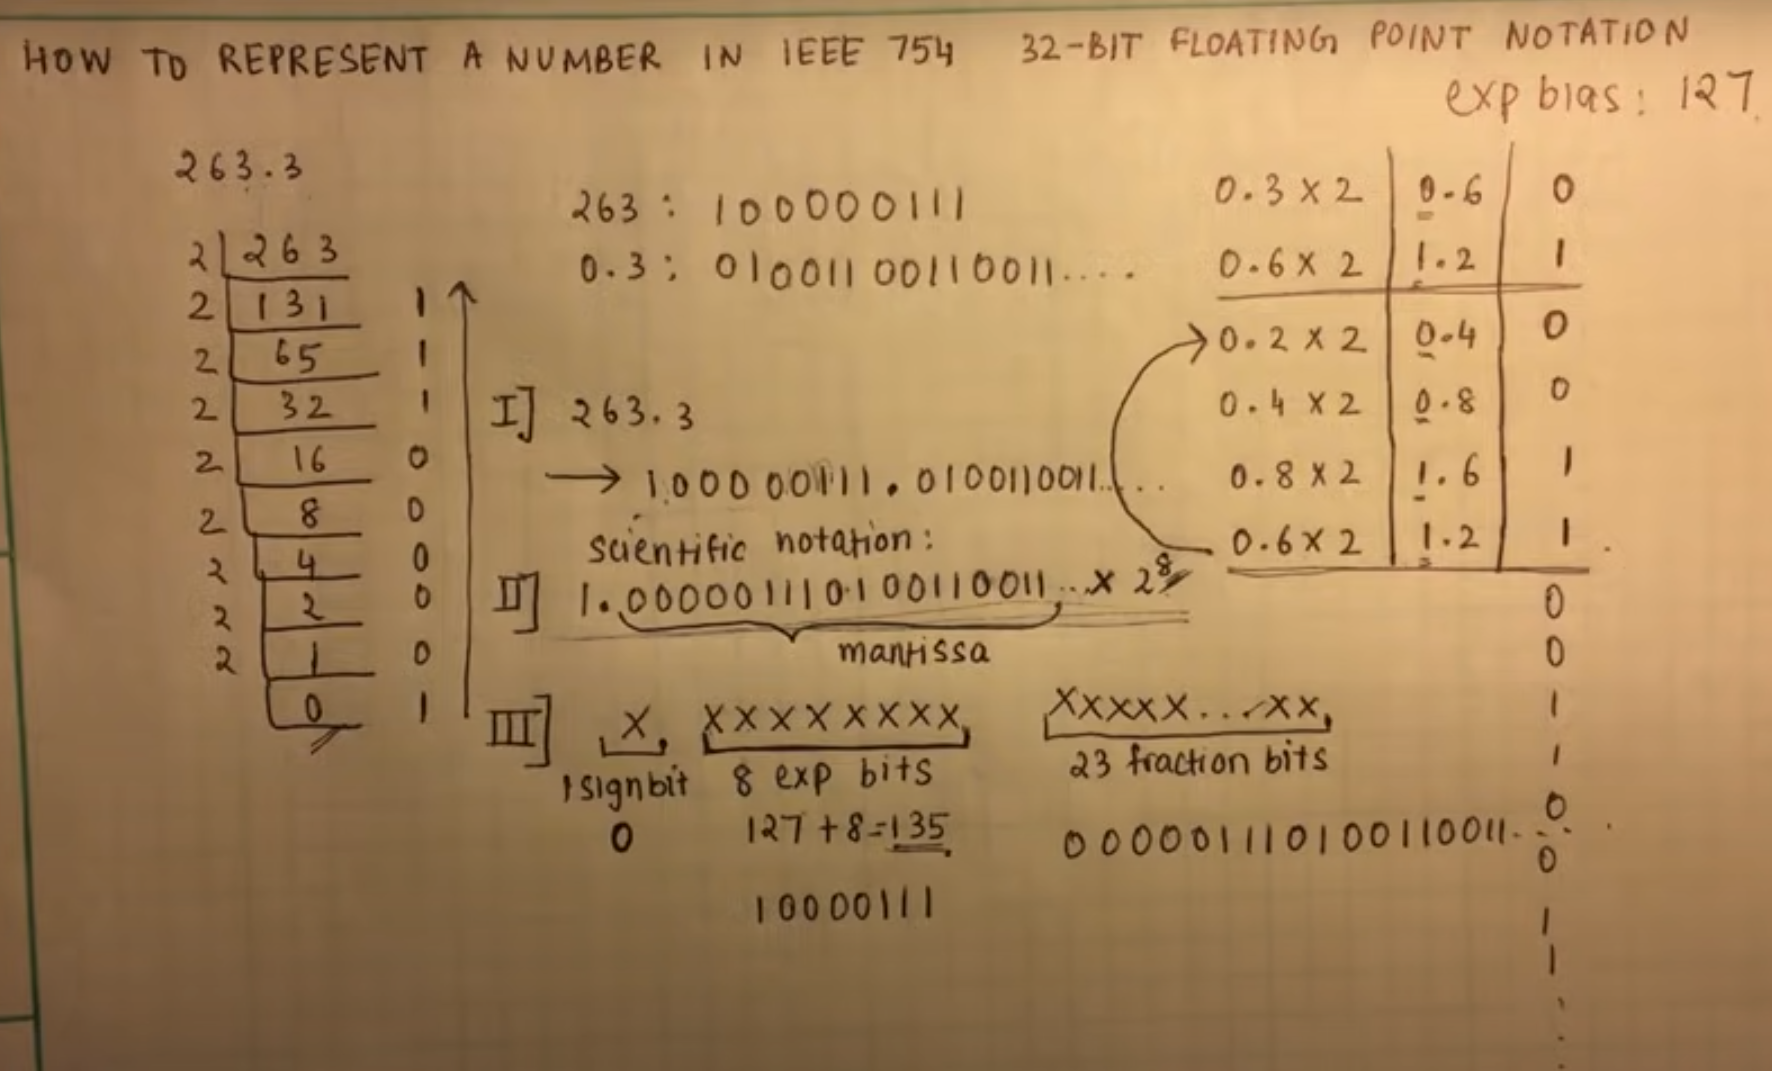 HOW TO REPRESENT A NUMBER IN IEEE 754 32-BIT FLOATING POINT NOTATION
exp bias: 127
263.3
2 263
2 131 1
2 65 1
2 32 1
2 16 0
2 8 0
2 4 0
2 2 0
2 1 0
0 1
263 : 100000111
0.3 : 01001100110011....
I] 263.3
→ 100000111.0100110011.....
scientific notation:
II] 1.000001110100110011...x 2^8
mantissa
III] X XXXXXXXX XXXXX...XX
1 sign bit 8 exp bits 23 fraction bits
0 127+8=135 000001110100110011...
10000111
0.3 x 2 0.6 0
0.6 x 2 1.2 1
0.2 x 2 0.4 0
0.4 x 2 0.8 0
0.8 x 2 1.6 1
0.6 x 2 1.2 1
0
0
1
1
0
0
1
1